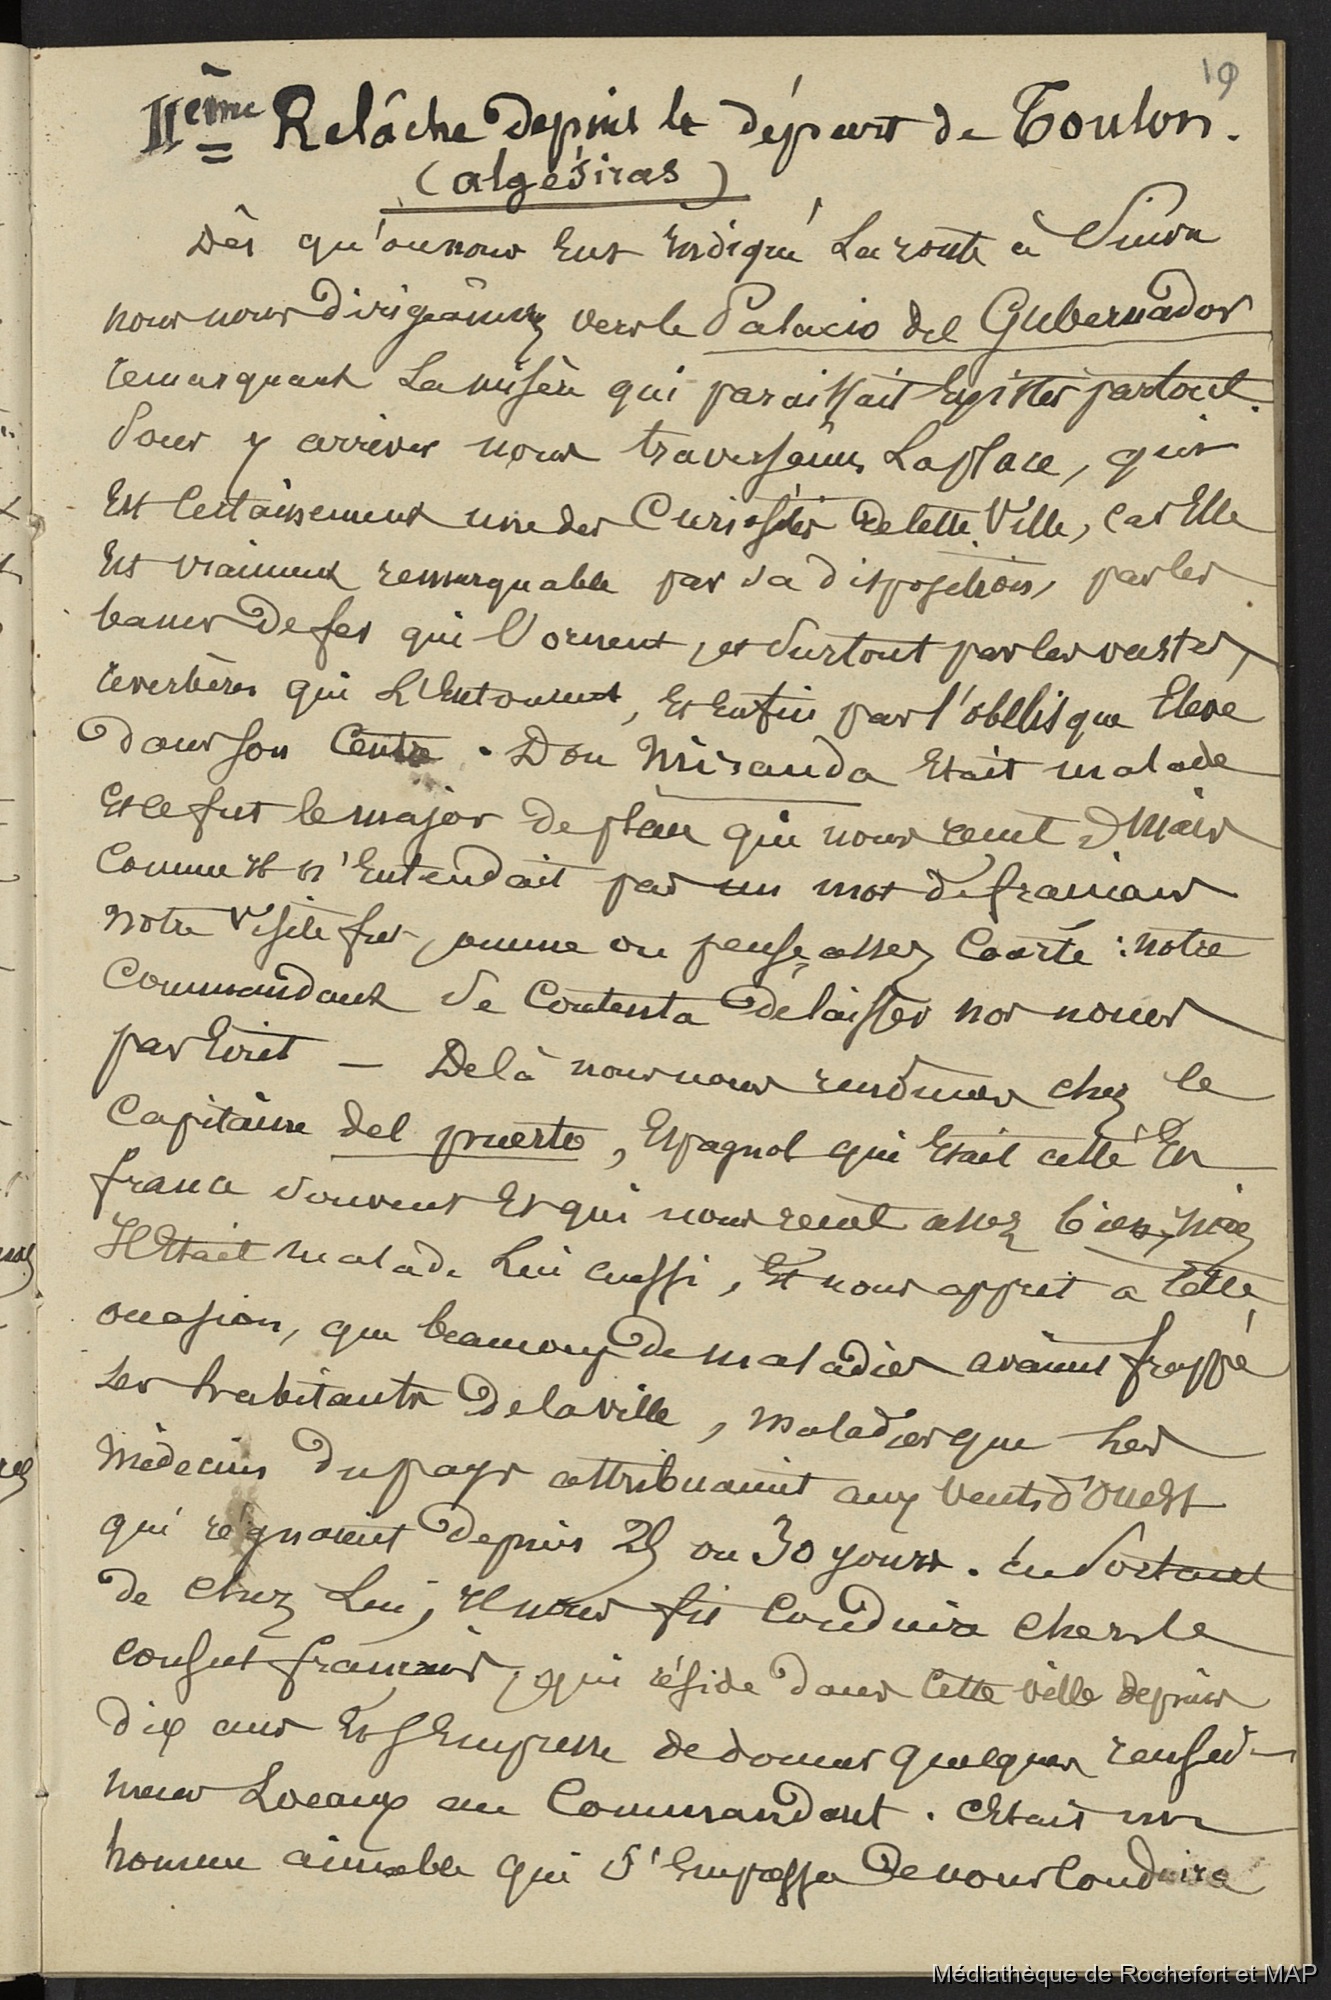 19
IIème Relâche depuis le départ de Toulon.
(algésiras)
Dès qu'on nous eut indiqué la route à suivre
nous nous dirigeâmes vers le Palacio del Gubernador
remarquant la misère qui paraissait exister partout.
Pour y arriver nous traversâmes la place, qui
est certainement une des curiosités de cette ville, car elle
est vraiment remarquable par sa disposition, par les
bancs de fer qui l'ornent, et surtout par les vastes
reverbères qui l'entourent, et enfin par l'obélisque élevé
dans son centre. Don Miranda était malade
et ce fut le major de place qui nous reçut. Mais
comme il n'entendait pas un mot de français
notre visite fut, comme on pense, assez courte : notre
commandant se contenta de laisser nos noms
par écrit — De là nous nous rendîmes chez le
Capitaine del puerto, Espagnol qui était allé en
france souvent et qui nous reçut assez bien, mais
Il était malade lui aussi, et nous apprit a cette
occasion, que beaucoup de maladies avaient frappé
les habitants de la ville, maladies que les
médecins du pays attribuaient aux vents d'ouest
qui régnaient depuis 25 ou 30 jours. en sortant
de chez lui, il nous fit conduire chez le
consul français, qui réside dans cette ville depuis
dix ans et s'empressa de donner quelques renseig-
nemens locaux au Commandant. C'était un
homme aimable qui s'empressa de nous conduire
Médiathèque de Rochefort et MAP